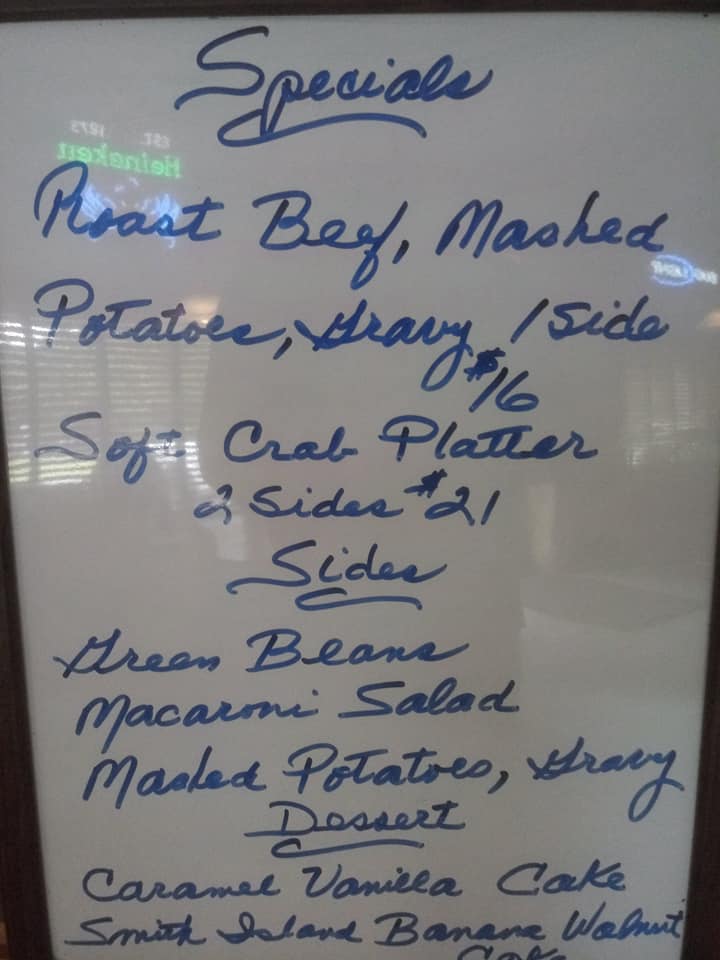 Specials
EST. 1873
Heineken
Roast Beef, Mashed
Potatoes, Gravy 1 Side
$16
Soft Crab Platter
2 Sides $21
Sides
Green Beans
Macaroni Salad
Mashed Potatoes, Gravy
Dessert
Caramel Vanilla Cake
Smith Island Banana Walnut
Cake